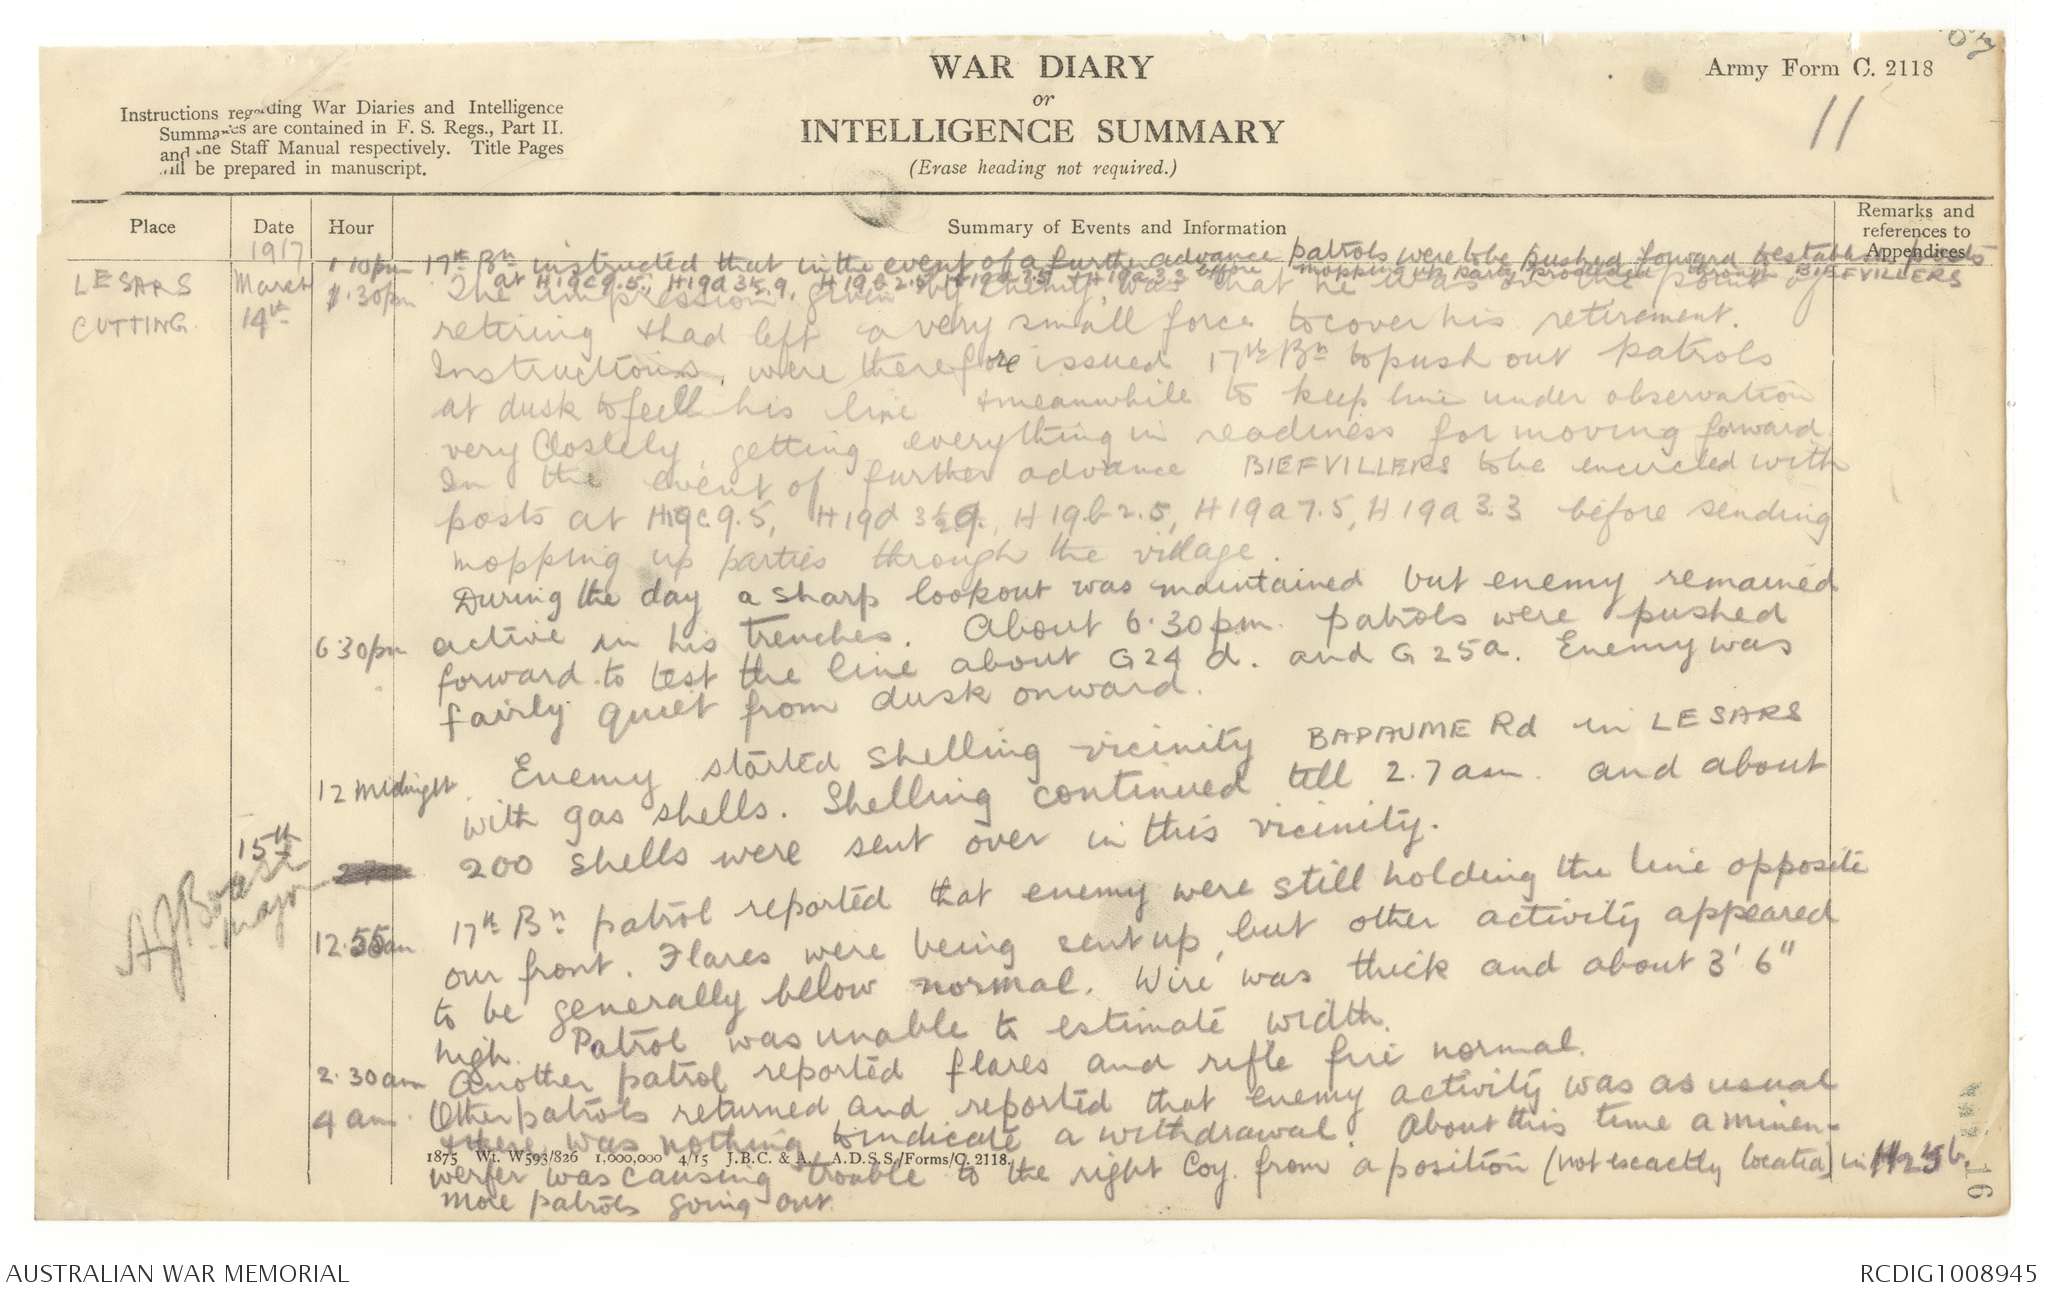 WAR DIARY
or
INTELLIGENCE SUMMARY
(Erase heading not required.)
Army Form C. 2118
11
Instructions regarding War Diaries and Intelligence
Summaries are contained in F. S. Regs., Part II.
and the Staff Manual respectively. Title Pages
will be prepared in manuscript.
Place Date Hour Summary of Events and Information Remarks and references to Appendices
1917
1.10pm 17th Bn instructed that in the event of a further advance patrols were to be pushed forward to establish posts
at H19c9.5, H19d 3½.9, H19b2.5, H19a7.5, H19a3.3 before mopping up party proceeded through BIEFVILLERS
LE SARS March 1.30pm The impression given by enemy, was that he was on the point of
CUTTING. 14th retiring & had left a very small force to cover his retirement.
Instructions, were therefore issued 17th Bn to push out patrols
at dusk to feell his line & meanwhile to keep line under observation
very closlely, getting everything in readiness for moving forward.
In the event of further advance BIEFVILLERS to be encircled with
posts at H19c.9.5, H19d 3½9, H19.b2.5, H19a7.5, H19a3.3 before sending
mopping up parties through the village.
During the day a sharp lookout was maintained but enemy remained
6.30pm active in his trenches. About 6.30pm. patrols were pushed
forward to test the line about G24 d. and G25a. Enemy was
fairly quiet from dusk onward.
12 Midnight. Enemy started shelling vicinity BAPAUME Rd in LE SARS
with gas shells. Shelling continued till 2.7am. and about
15th 200 shells were sent over in this vicinity.
AJBoast
Major
12.55am 17th Bn patrol reported that enemy were still holding the line opposite
our front. Flares were being sent up, but other activity appeared
to be generally below normal. Wire was thick and about 3' 6"
high. Patrol was unable to estimate width.
2.30am Another patrol reported flares and rifle fire normal.
4am. Other patrols returned and reported that enemy activity was as usual
& there was nothing to indicate a withdrawal. About this time a minen-
1875 Wt. W593/826 1,000,000 4/15 J.B.C. & A. A.D.S.S./Forms/C. 2118.
werfer was causing trouble to the right Coy. from a position (not exactly located) in H25b.
More patrols going out.
AUSTRALIAN WAR MEMORIAL
RCDIG1008945